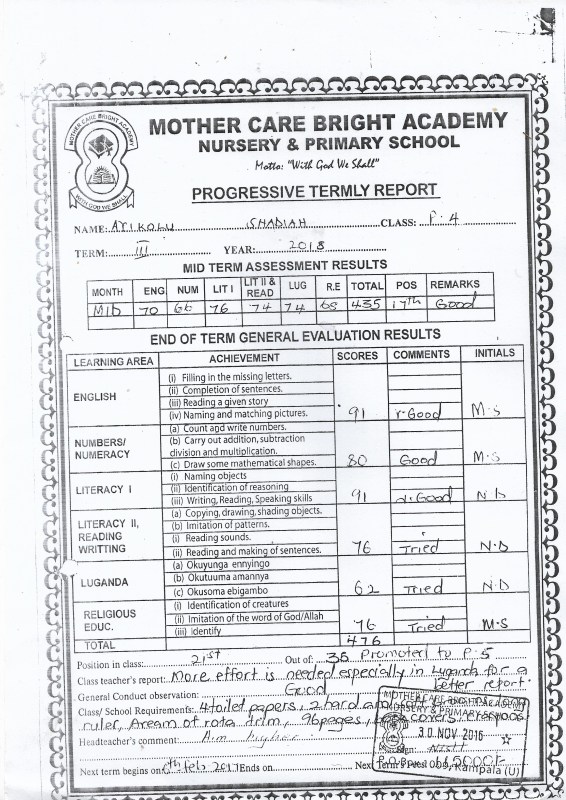 MOTHER CARE BRIGHT ACADEMY
WITH GOD WE SHALL
MOTHER CARE BRIGHT ACADEMY
NURSERY & PRIMARY SCHOOL
Motto: "With God We Shall"
PROGRESSIVE TERMLY REPORT
NAME: ATIKORU SHADIAH CLASS: P.4
TERM: III YEAR: 2018
MID TERM ASSESSMENT RESULTS
MONTH ENG NUM LIT I LIT II & READ LUG R.E TOTAL POS REMARKS
MID 70 66 76 74 74 68 435 17th Good
END OF TERM GENERAL EVALUATION RESULTS
LEARNING AREA ACHIEVEMENT SCORES COMMENTS INITIALS
ENGLISH
(i) Filling in the missing letters.
(ii) Completion of sentences.
(iii) Reading a given story
(iv) Naming and matching pictures. 91 v.Good M.S
NUMBERS/ NUMERACY
(a) Count agd write numbers.
(b) Carry out addition, subtraction
division and multiplication.
(c) Draw some mathematical shapes. 80 Good M.S
LITERACY I
(i) Naming objects
(ii) Identification of reasoning
(iii) Writing, Reading, Speaking skills 91 v.Good N.D
LITERACY II, READING WRITTING
(a) Copying, drawing, shading objects.
(b) Imitation of patterns.
(i) Reading sounds.
(ii) Reading and making of sentences. 76 Tried N.D
LUGANDA
(a) Okuyunga ennyingo
(b) Okutuuma amannya
(c) Okusoma ebigambo 62 Tried N.D
RELIGIOUS EDUC.
(i) Identification of creatures
(ii) Imitation of the word of God/Allah
(iii) Identify 76 Tried M.S
TOTAL 476
Position in class: 21st Out of: 35 Promoted to P.5
Class teacher's report: More effort is needed especially in Luganda for a better report.
General Conduct observation: Good
Class/ School Requirements: 4 toilet papers, 2 hard
ruler, A ream of rota trim, 96 pages, covers
Headteacher's comment: Aim higher
MOTHER CARE BRIGHT ACADEMY
NURSERY & PRIMARY SCHOOL
30 NOV 2016
Sign
Next term begins on 6th Feb 2017 Ends on Next Term's Fees
P.O.Box Kampala (U)